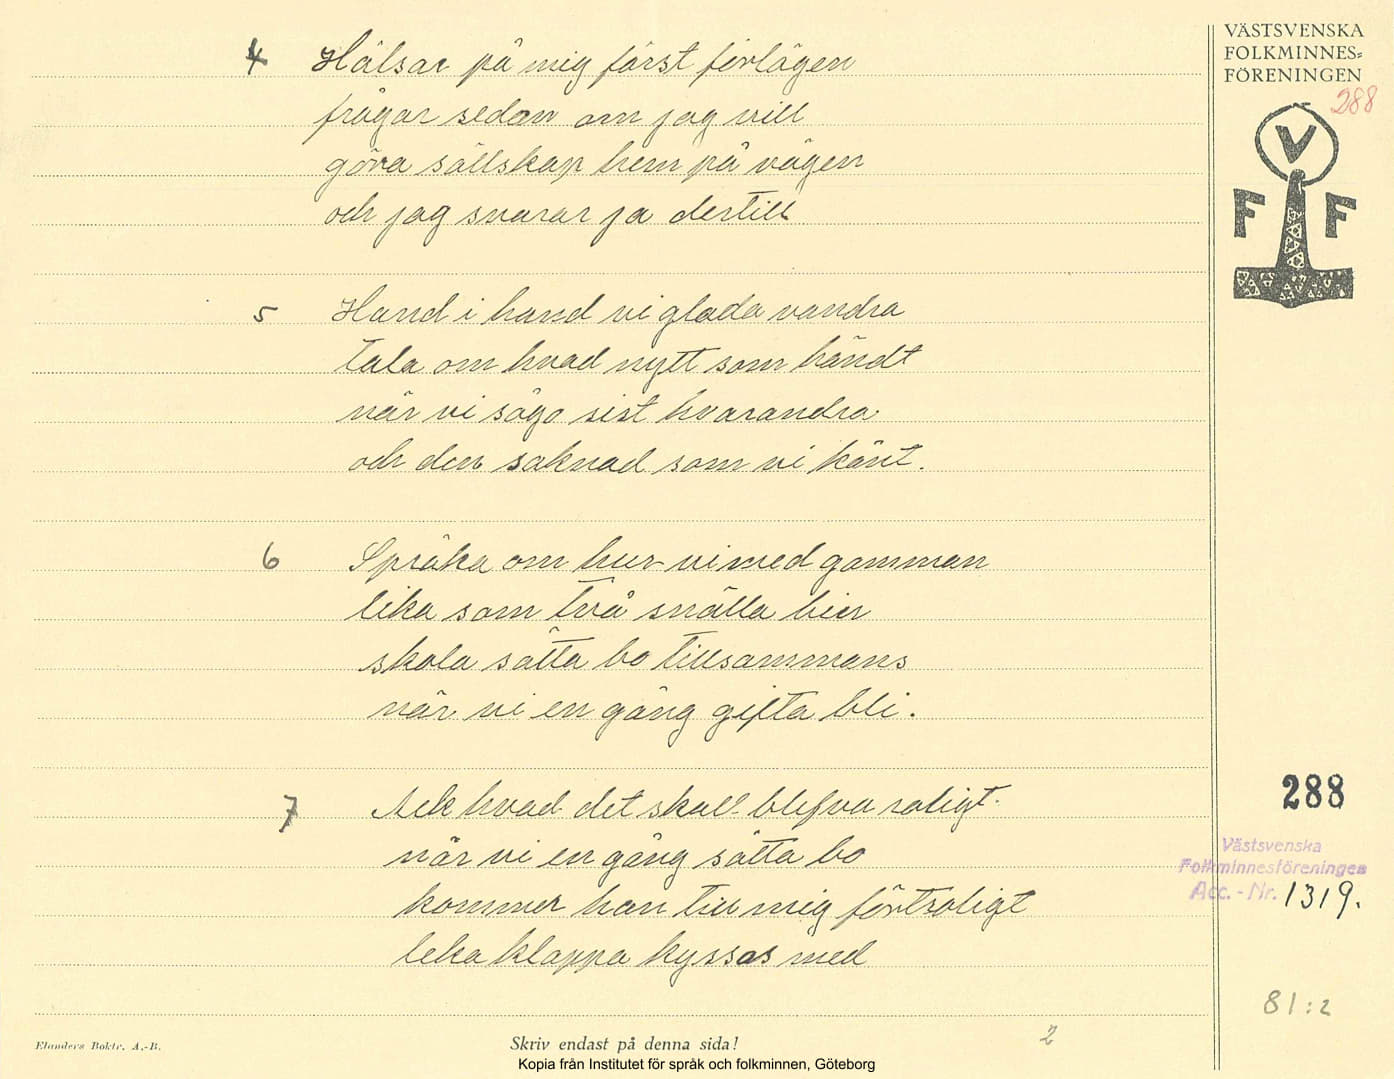 VÄSTSVENSKA
FOLKMINNES=
FÖRENINGEN
288
V
F F
4 Hälsar på mig först förlägen
frågar sedan om jag vill
göra sällskap hem på vägen
och jag svarar ja dertill
5 Hand i hand vi glada vandra
tala om hvad nytt som händt
när vi sågo sist hvarandra
och den saknad som vi känt.
6 Språka om hur vi med gamman
lika som två snälla bin
skola sätta bo tillsammans
när vi en gång gifta bli.
7 Ack hvad det skall blifva roligt.
när vi en gång sätta bo
kommer han till mig förtroligt
leka klappa kyssas med
288
Västsvenska
Folkminnesföreningen
Acc. - Nr. 1319.
81:2
2
Elanders Boktr. A.-B.
Skriv endast på denna sida!
Kopia från Institutet för språk och folkminnen, Göteborg